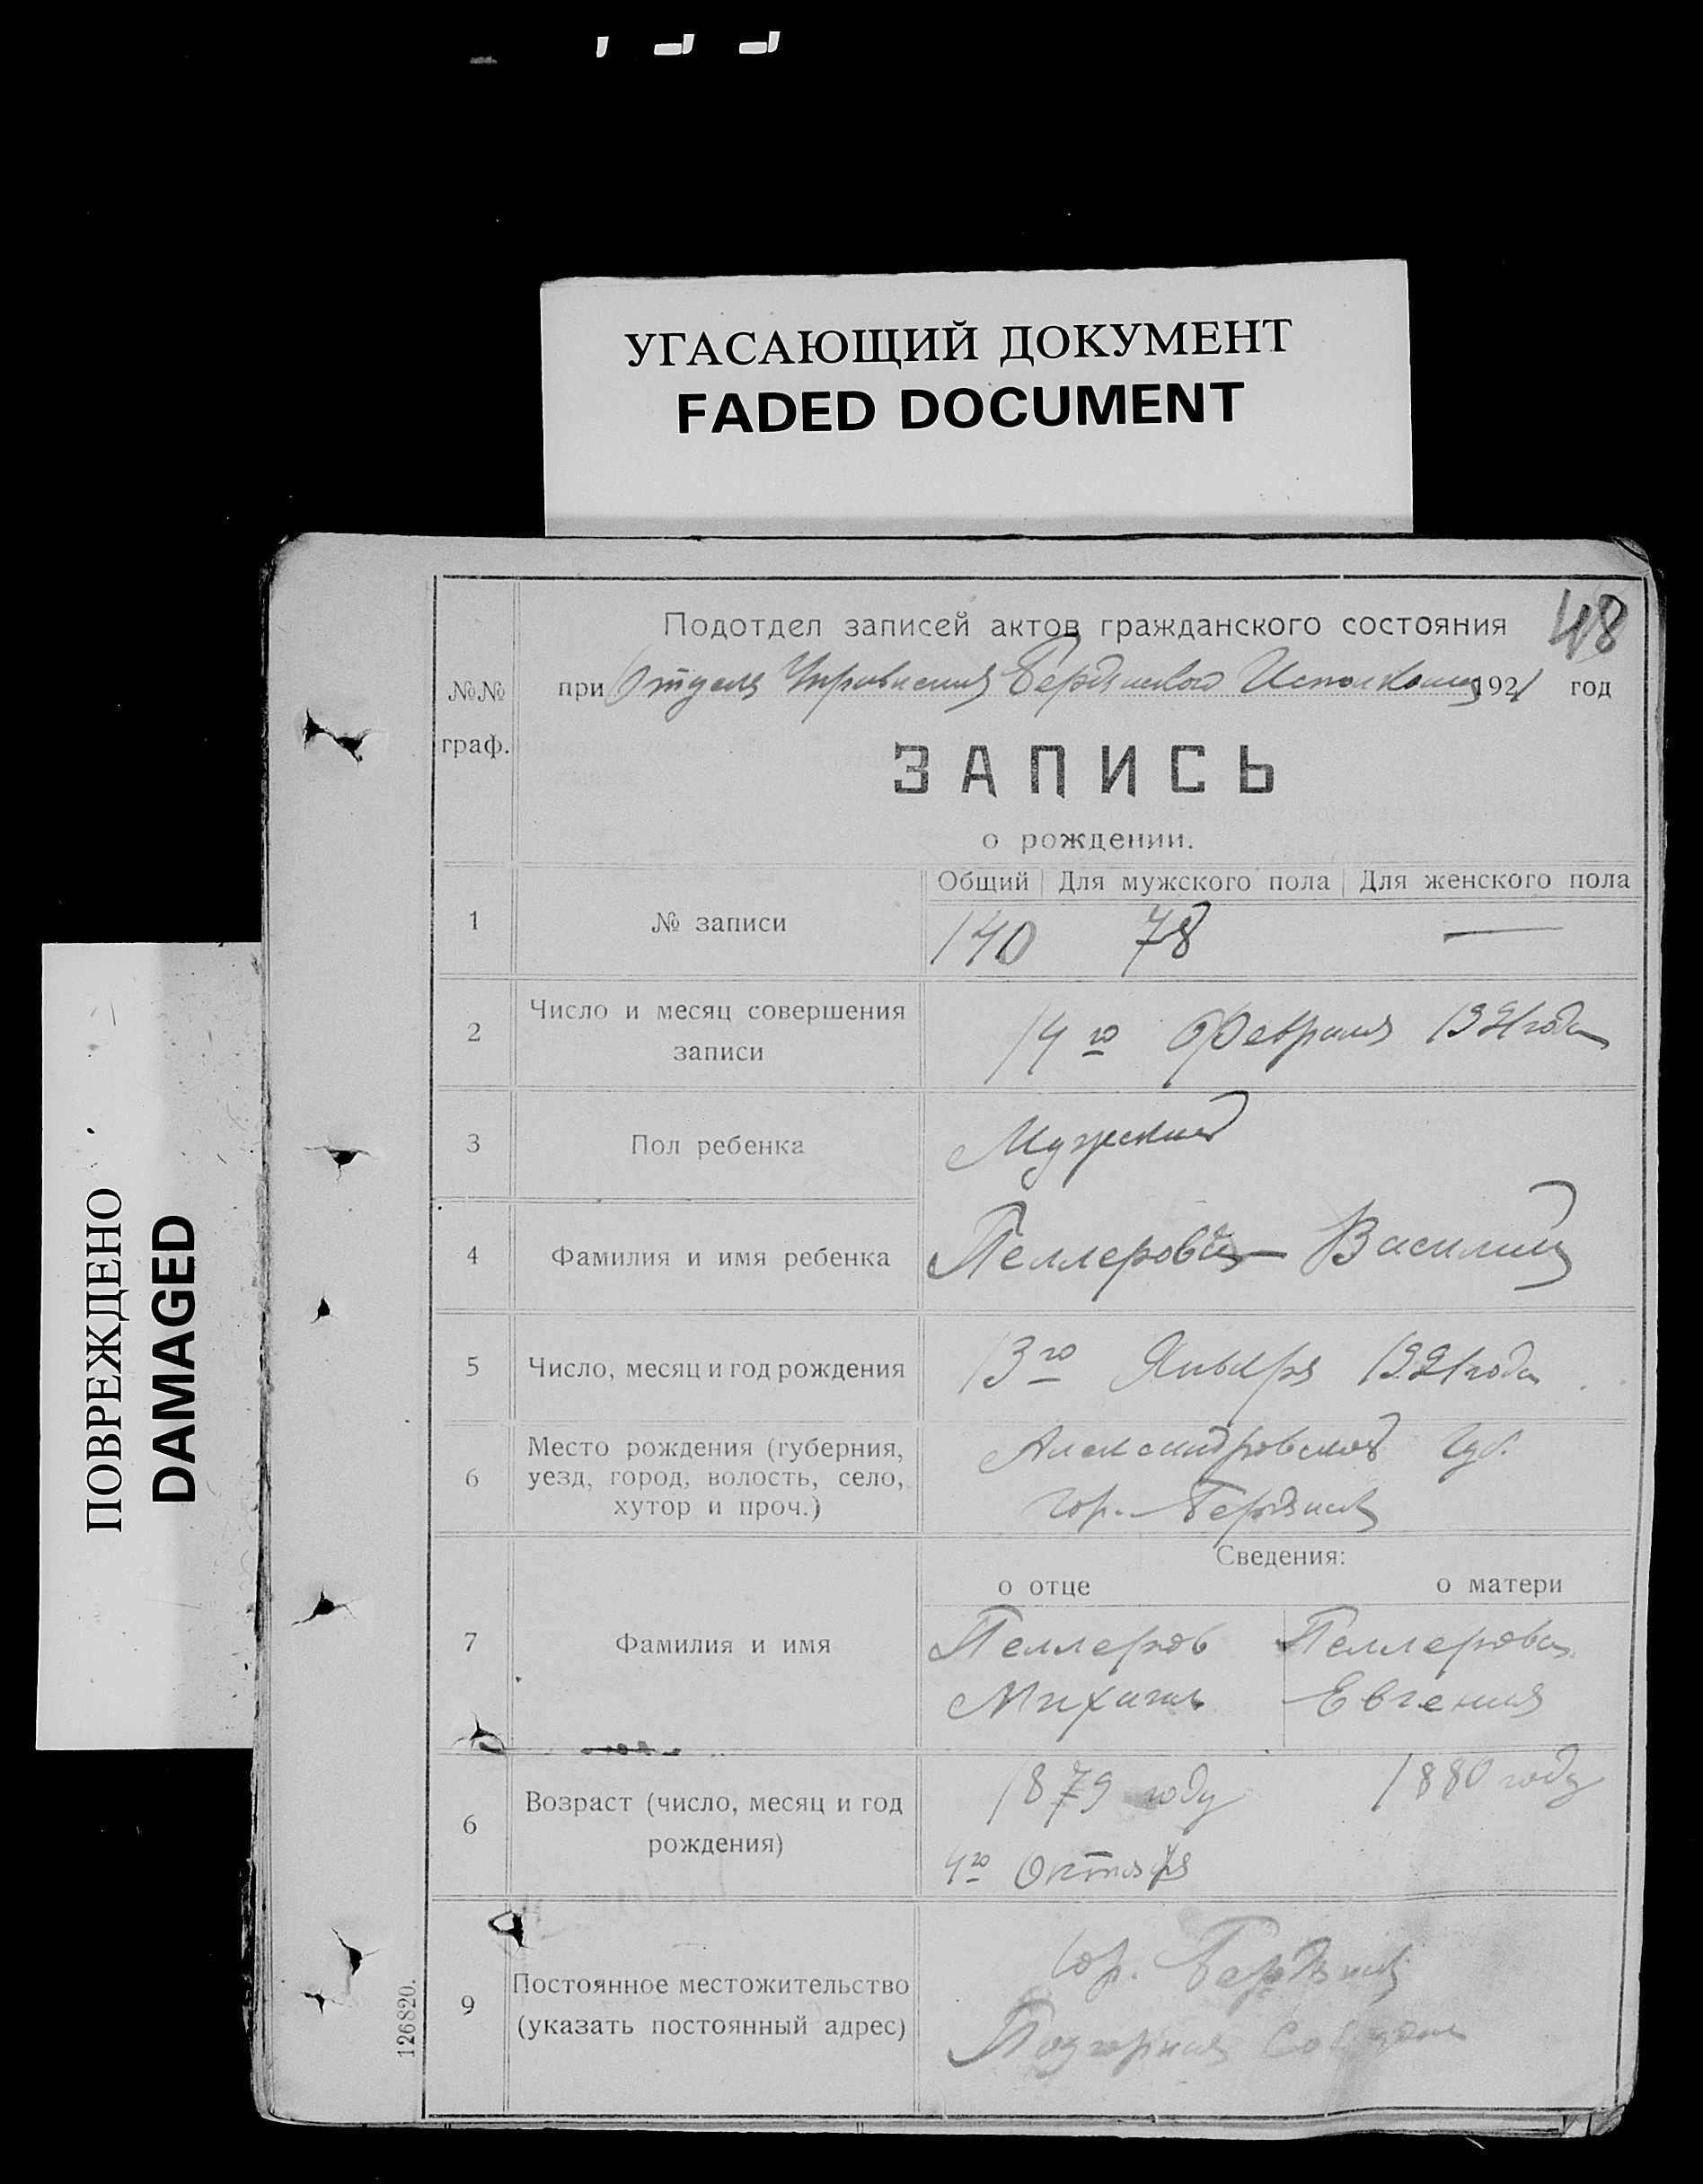 УГАСАЮЩИЙ ДОКУМЕНТ
FADED DOCUMENT
ПОВРЕЖДЕНО
DAMAGED
48
Подотдел записей актов гражданского состояния
при Отдела Управления Бердянского Исполкома 1921 год
№№
граф.
ЗАПИСЬ
о рождении.
Общий Для мужского пола Для женского пола
1 № записи 140 78 —
2 Число и месяц совершения
записи
14го Февраля 1921 года
3 Пол ребенка Мужской
4 Фамилия и имя ребенка Василий
5 Число, месяц и год рождения 13го Января 1921 года
6 Место рождения (губерния,
уезд, город, волость, село,
хутор и проч.)
Александровской губ.
гор. Бердянск
Сведения:
о отце о матери
7 Фамилия и имя
Пеллеров Пеллерова
Михаил Евгения
6 Возраст (число, месяц и год
рождения)
1879 году 1880 году
4го Октября
9 Постоянное местожительство
(указать постоянный адрес)
гор. Бердянск
126820.